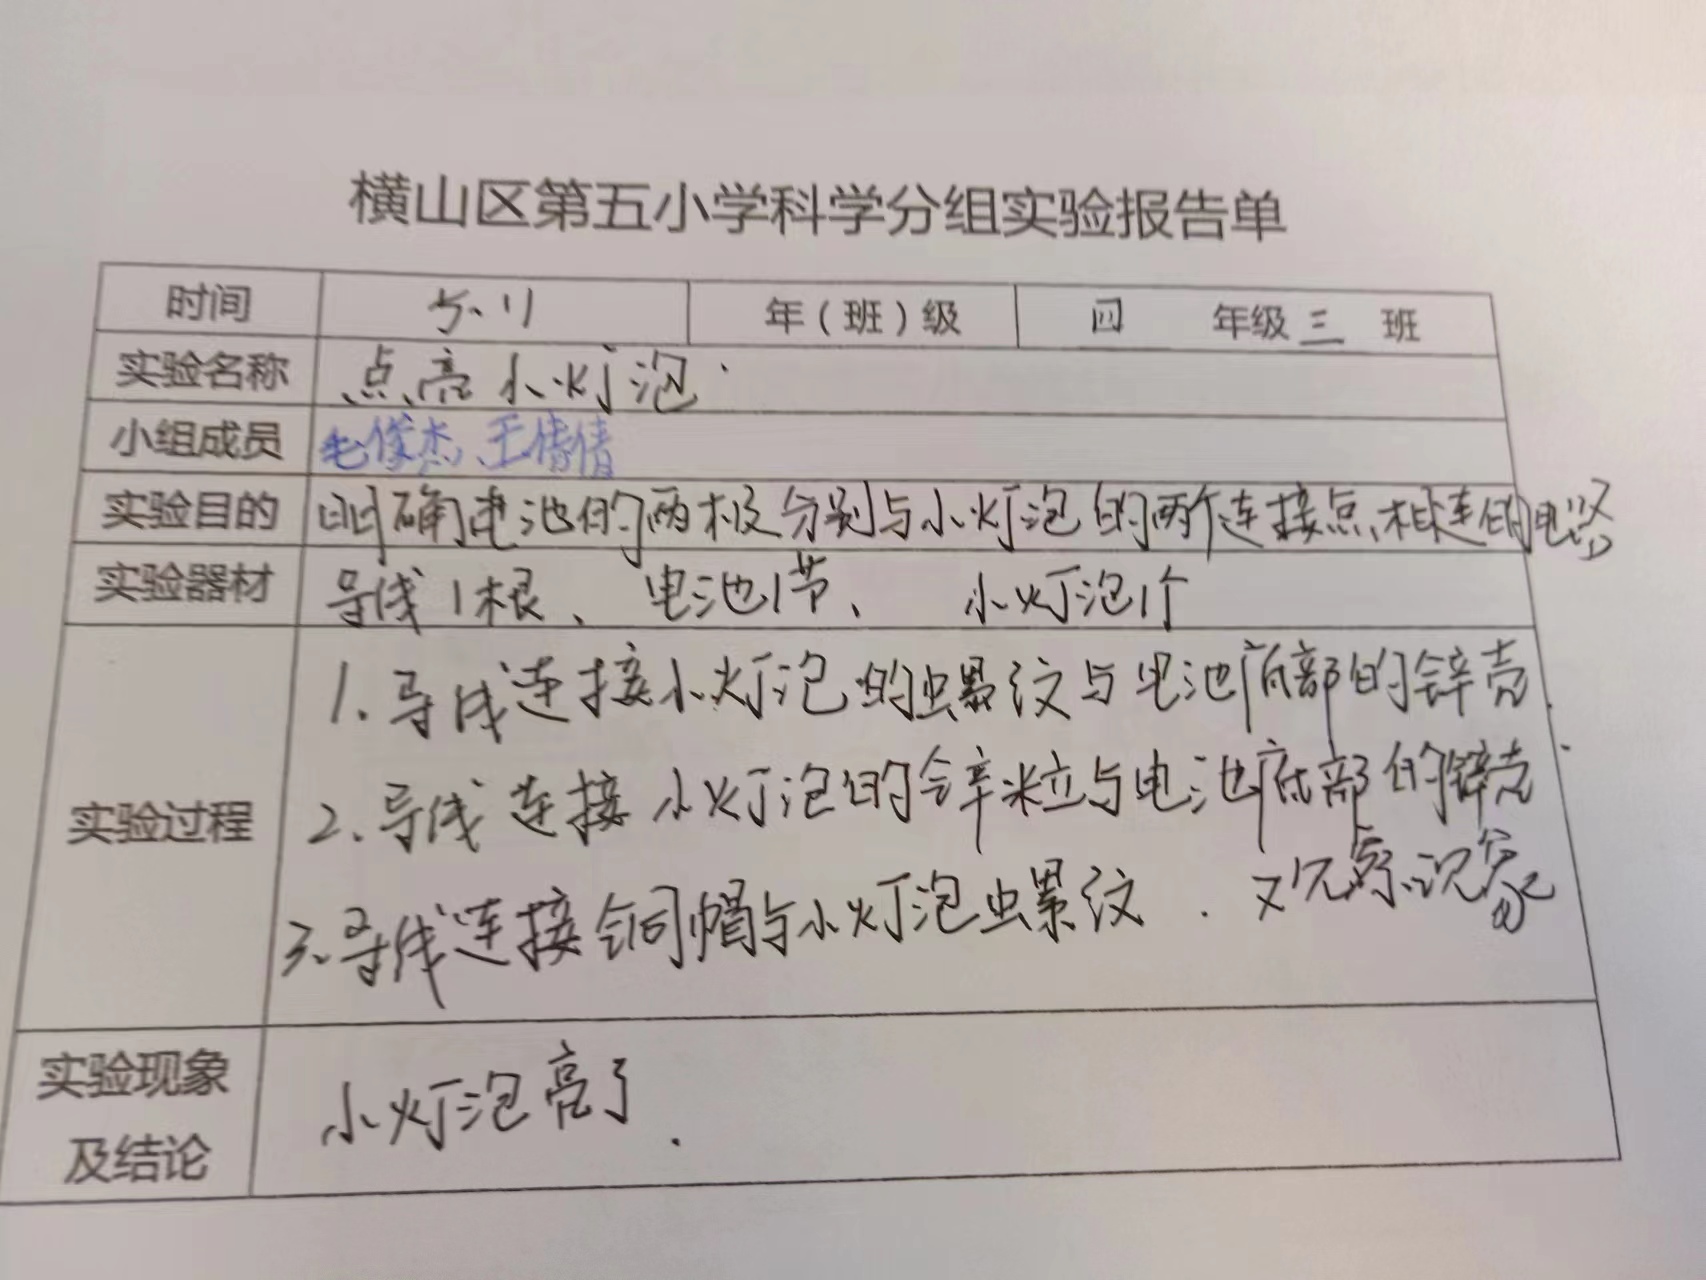 横山区第五小学科学分组实验报告单
时间 5.11 年(班)级 四 年级 三 班
实验名称 点亮小灯泡.
小组成员 毛俊杰、王倩倩
实验目的 明确电池的两极分别与小灯泡的两个连接点相连的电路
实验器材 导线1根、 电池1节、 小灯泡1个
实验过程
1.导线连接小灯泡的螺纹与电池底部的锌壳.
2.导线连接小灯泡的锌粒与电池底部的锌壳.
3.导线连接铜帽与小灯泡螺纹. 观察记录
实验现象
及结论
小灯泡亮了.